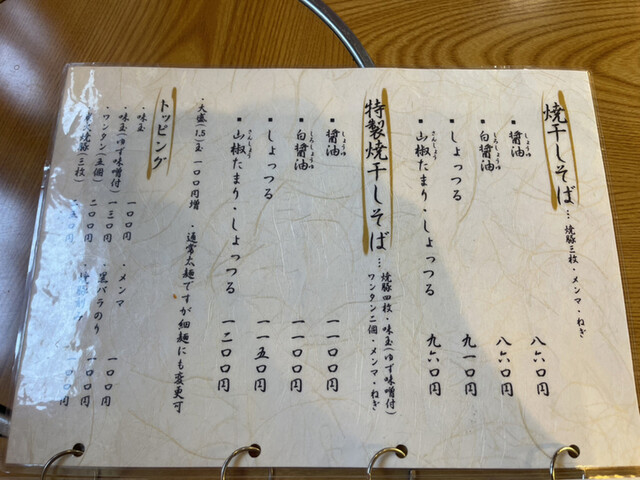 焼干しそば … 焼豚三枚・メンマ・ねぎ
醤油 八六〇円
しょうゆ
白醤油 八六〇円
しろしょうゆ
しょっつる 九一〇円
山椒たまり・しょっつる 九六〇円
さんしょう
特製焼干しそば … 焼豚四枚・味玉(ゆず味噌付)
ワンタン二個・メンマ・ねぎ
醤油 一一〇〇円
しょうゆ
白醤油 一一〇〇円
しろしょうゆ
しょっつる 一一五〇円
山椒たまり・しょっつる 一二〇〇円
さんしょう
・大盛(1.5)玉 一〇〇円増 ・通常太麺ですが細麺にも変更可
トッピング
・味玉 一〇〇円
・味玉(ゆず味噌付) 一三〇円
・ワンタン(五個) 二〇〇円
焼豚(三枚) 円
・メンマ 一〇〇円
・黒バラのり 一〇〇円
一〇〇円